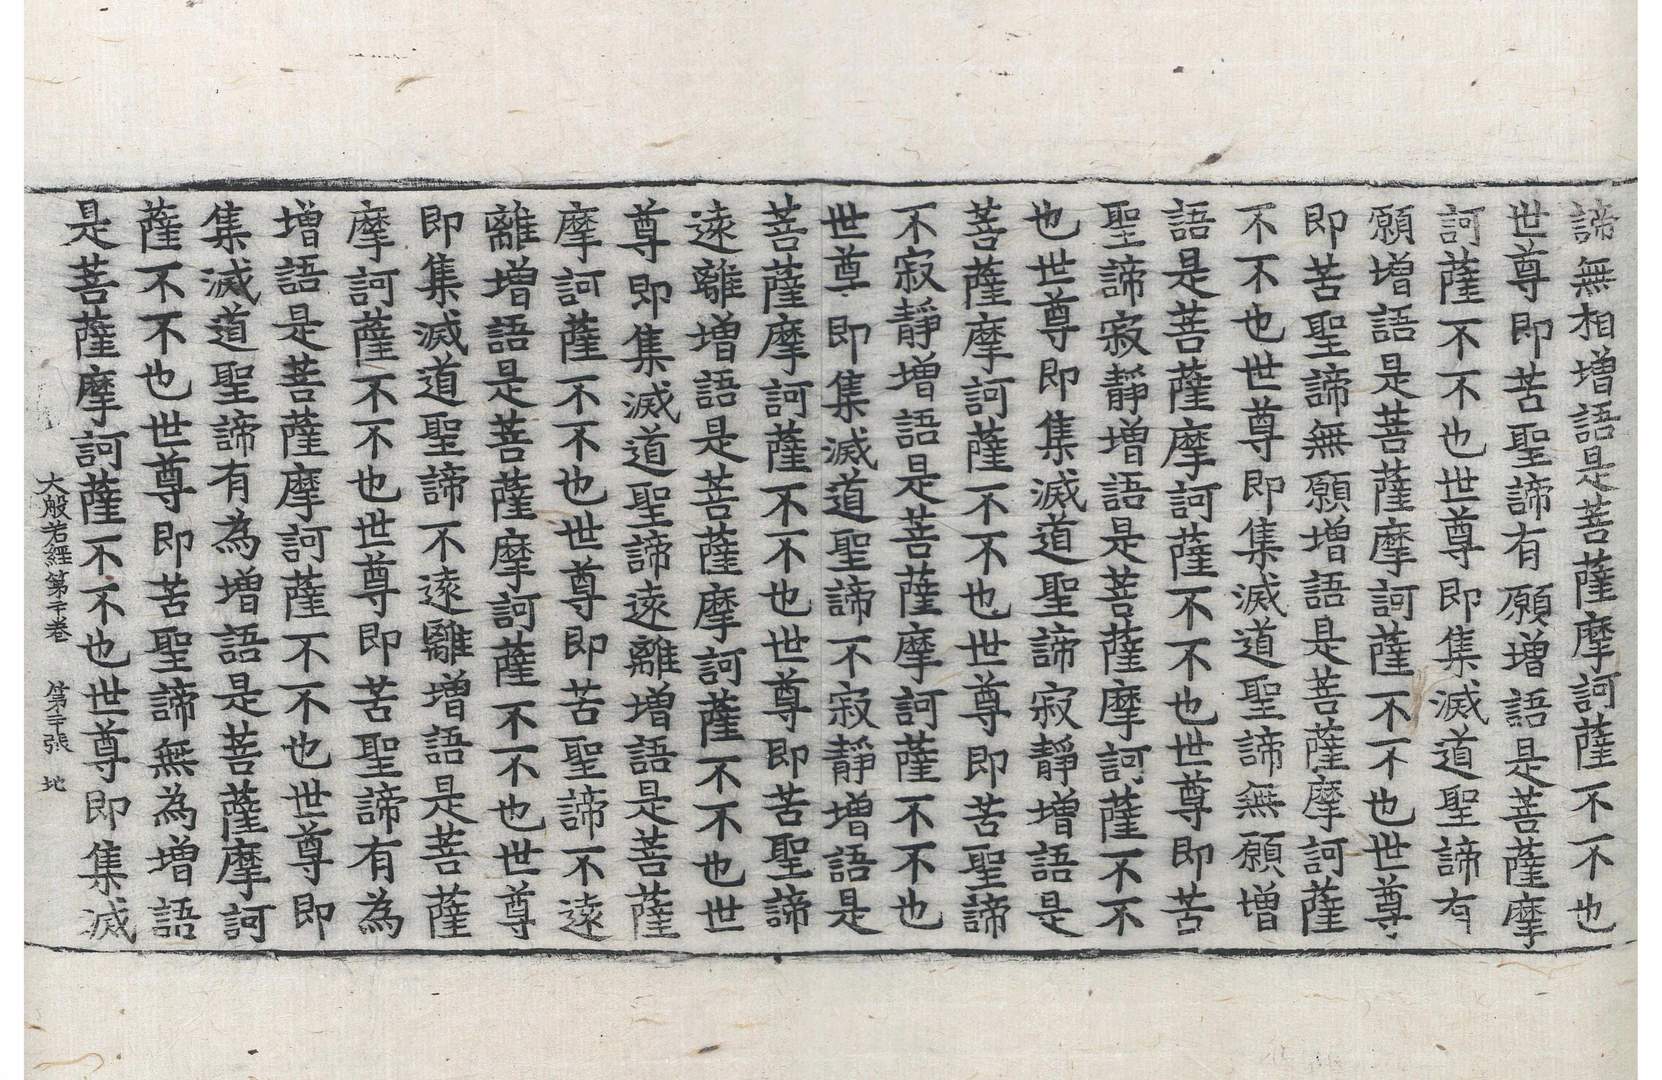 諦無相增語是菩薩摩訶薩不不也
世尊即苦聖諦有願增語是菩薩摩
訶薩不不也世尊即集滅道聖諦有
願增語是菩薩摩訶薩不不也世尊
即苦聖諦無願增語是菩薩摩訶薩
不不也世尊即集滅道聖諦無願增
語是菩薩摩訶薩不不也世尊即苦
聖諦寂靜增語是菩薩摩訶薩不不
也世尊即集滅道聖諦寂靜增語是
菩薩摩訶薩不不也世尊即苦聖諦
不寂靜增語是菩薩摩訶薩不不也
世尊即集滅道聖諦不寂靜增語是
菩薩摩訶薩不不也世尊即苦聖諦
遠離增語是菩薩摩訶薩不不也世
尊即集滅道聖諦遠離增語是菩薩
摩訶薩不不也世尊即苦聖諦不遠
離增語是菩薩摩訶薩不不也世尊
即集滅道聖諦不遠離增語是菩薩
摩訶薩不不也世尊即苦聖諦有為
增語是菩薩摩訶薩不不也世尊即
集滅道聖諦有為增語是菩薩摩訶
薩不不也世尊即苦聖諦無為增語
是菩薩摩訶薩不不也世尊即集滅
大般若經第二十卷 第二十張 地